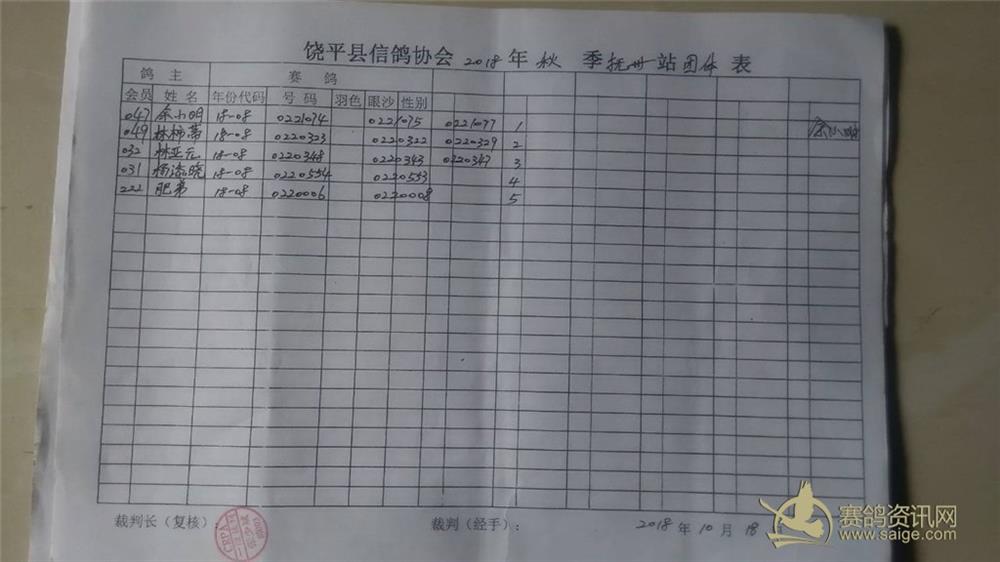 饶平县信鸽协会 2018 年 秋 季 抚州 站 团体 表
鸽 主 赛 鸽
会员 姓名 年份代码 号码 羽色 眼沙 性别
047 余小明 18-08 0221074 0221075 0221077 1 余小明
049 林柿蒂 18-08 0220323 0220322 0220329 2
032 林亚元 18-08 0220348 0220343 0220347 3
031 杨 晓 18-08 0220554 0220553 4
222 肥弟 18-08 0220006 0220008 5
裁判长（复核）： 裁判（经手）： 2018 年 10 月 18
赛鸽资讯网
www.saige.com